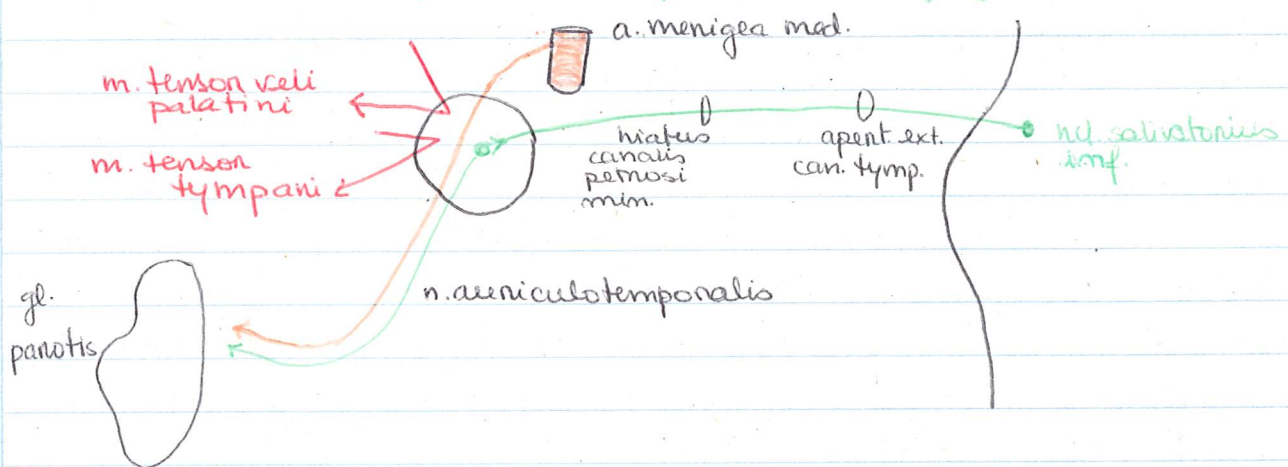 a. menigea med.
m. tensor veli
palatini
m. tensor
tympani
hiatus
canalis
petrosi
min.
apert. ext.
can. tymp.
ncl. salivatorius
inf.
n. auriculotemporalis
gl.
parotis